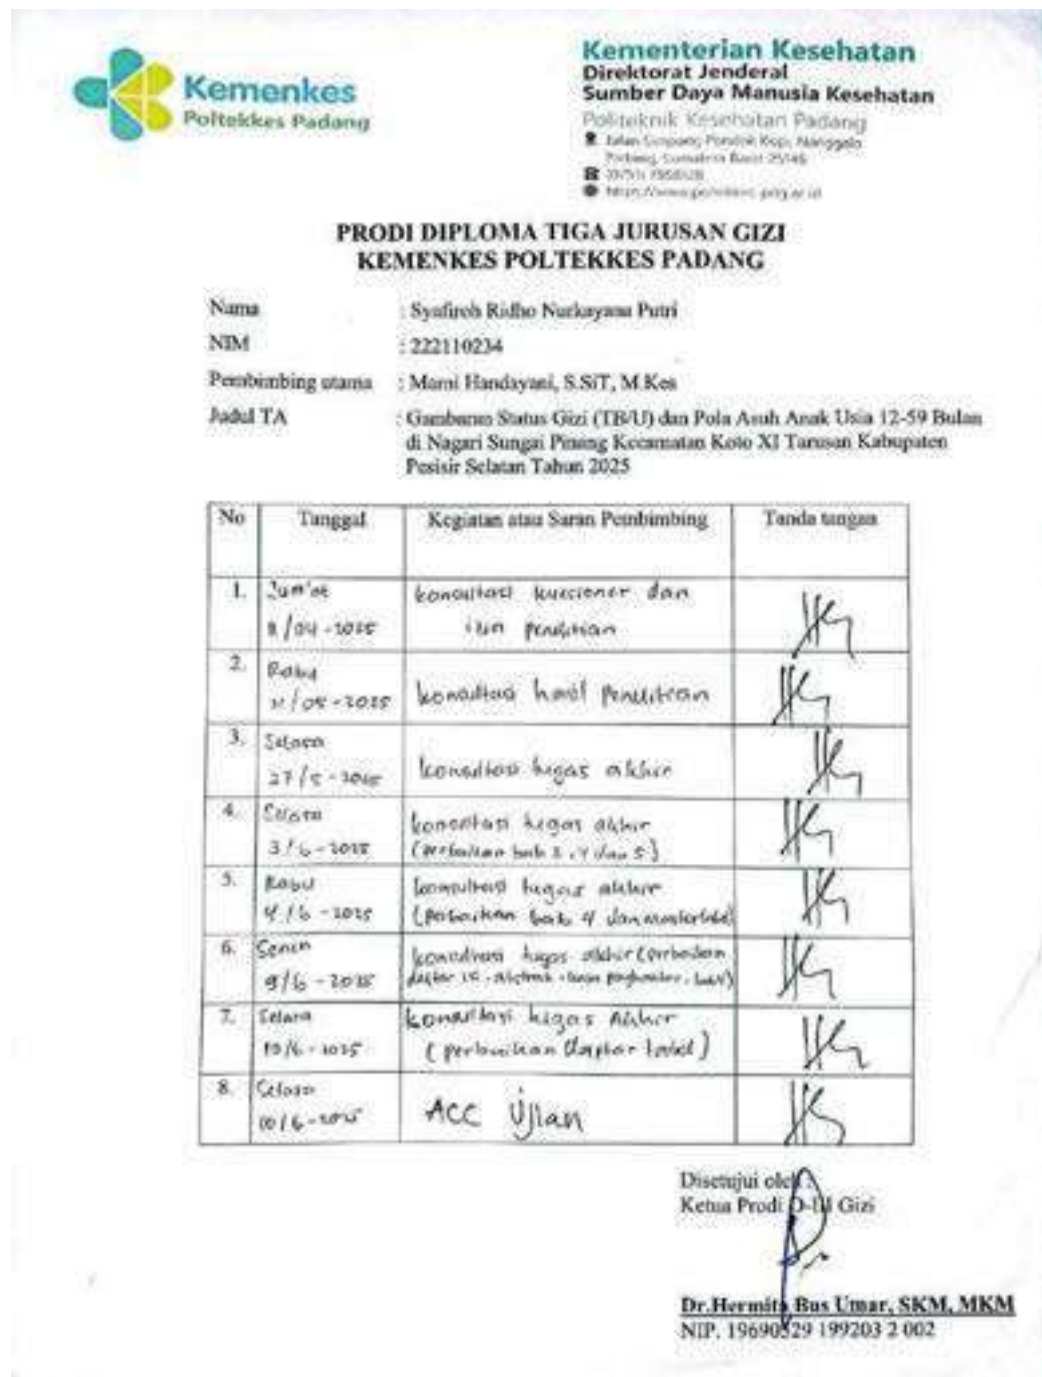 Kemenkes
Poltekkes Padang
Kementerian Kesehatan
Direktorat Jenderal
Sumber Daya Manusia Kesehatan
Politeknik Kesehatan Padang
Jalan Simpang Pondok Kopi, Nanggalo
Padang, Sumatera Barat 25146
PRODI DIPLOMA TIGA JURUSAN GIZI
KEMENKES POLTEKKES PADANG
Nama : Syafiroh Ridho Nurkayana Putri
NIM : 222110234
Pembimbing utama : Marni Handayani, S.SiT, M.Kes
Judul TA : Gambaran Status Gizi (TB/U) dan Pola Asuh Anak Usia 12-59 Bulan
di Nagari Sungai Pinang Kecamatan Koto XI Tarusan Kabupaten
Pesisir Selatan Tahun 2025
No Tanggal Kegiatan atau Saran Pembimbing Tanda tangan
1. Jum'at konsultasi kuesioner dan
/04 -2025 izin penelitian
2. Rabu
/05 -2025 konsultasi hasil penelitian
3. Selasa
27/5 - 2025 konsultasi tugas akhir
4. Selasa konsultasi tugas akhir
3/6 - 2025 (perbaikan bab 3, 4 dan 5)
5. Rabu konsultasi tugas akhir
4/6 - 2025 (perbaikan bab 4 dan mastertabel)
6. Senin konsultasi tugas akhir (perbaikan
9/6 - 2025 daftar isi, abstrak, kata pengantar,
7. Selasa konsultasi tugas Akhir
10/6 - 2025 (perbaikan Daftar tabel)
8. Selasa ACC Ujian
10/6 - 2025
Disetujui oleh :
Ketua Prodi D-III Gizi
Dr.Hermita Bus Umar, SKM, MKM
NIP. 19690529 199203 2 002